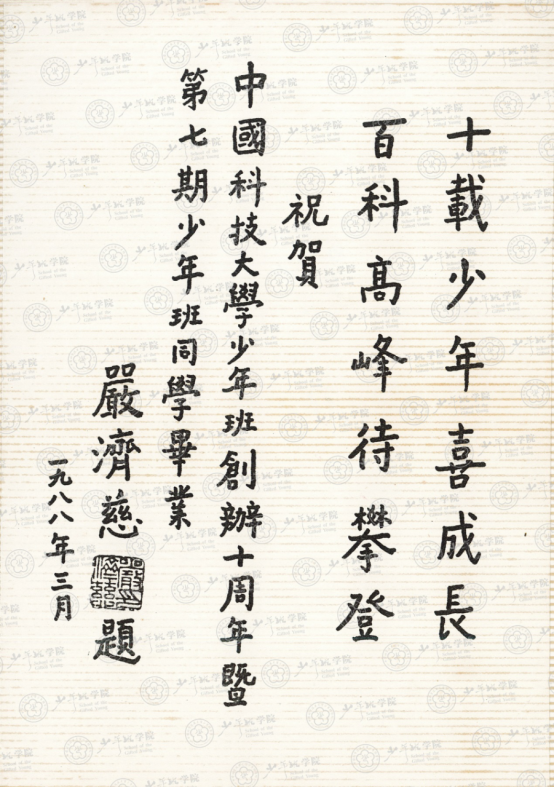 十載少年喜成長
百科高峰待攀登
祝賀
中國科技大學少年班創辦十周年暨
第七期少年班同學畢業
嚴濟慈題
一九八八年三月
少年班学院